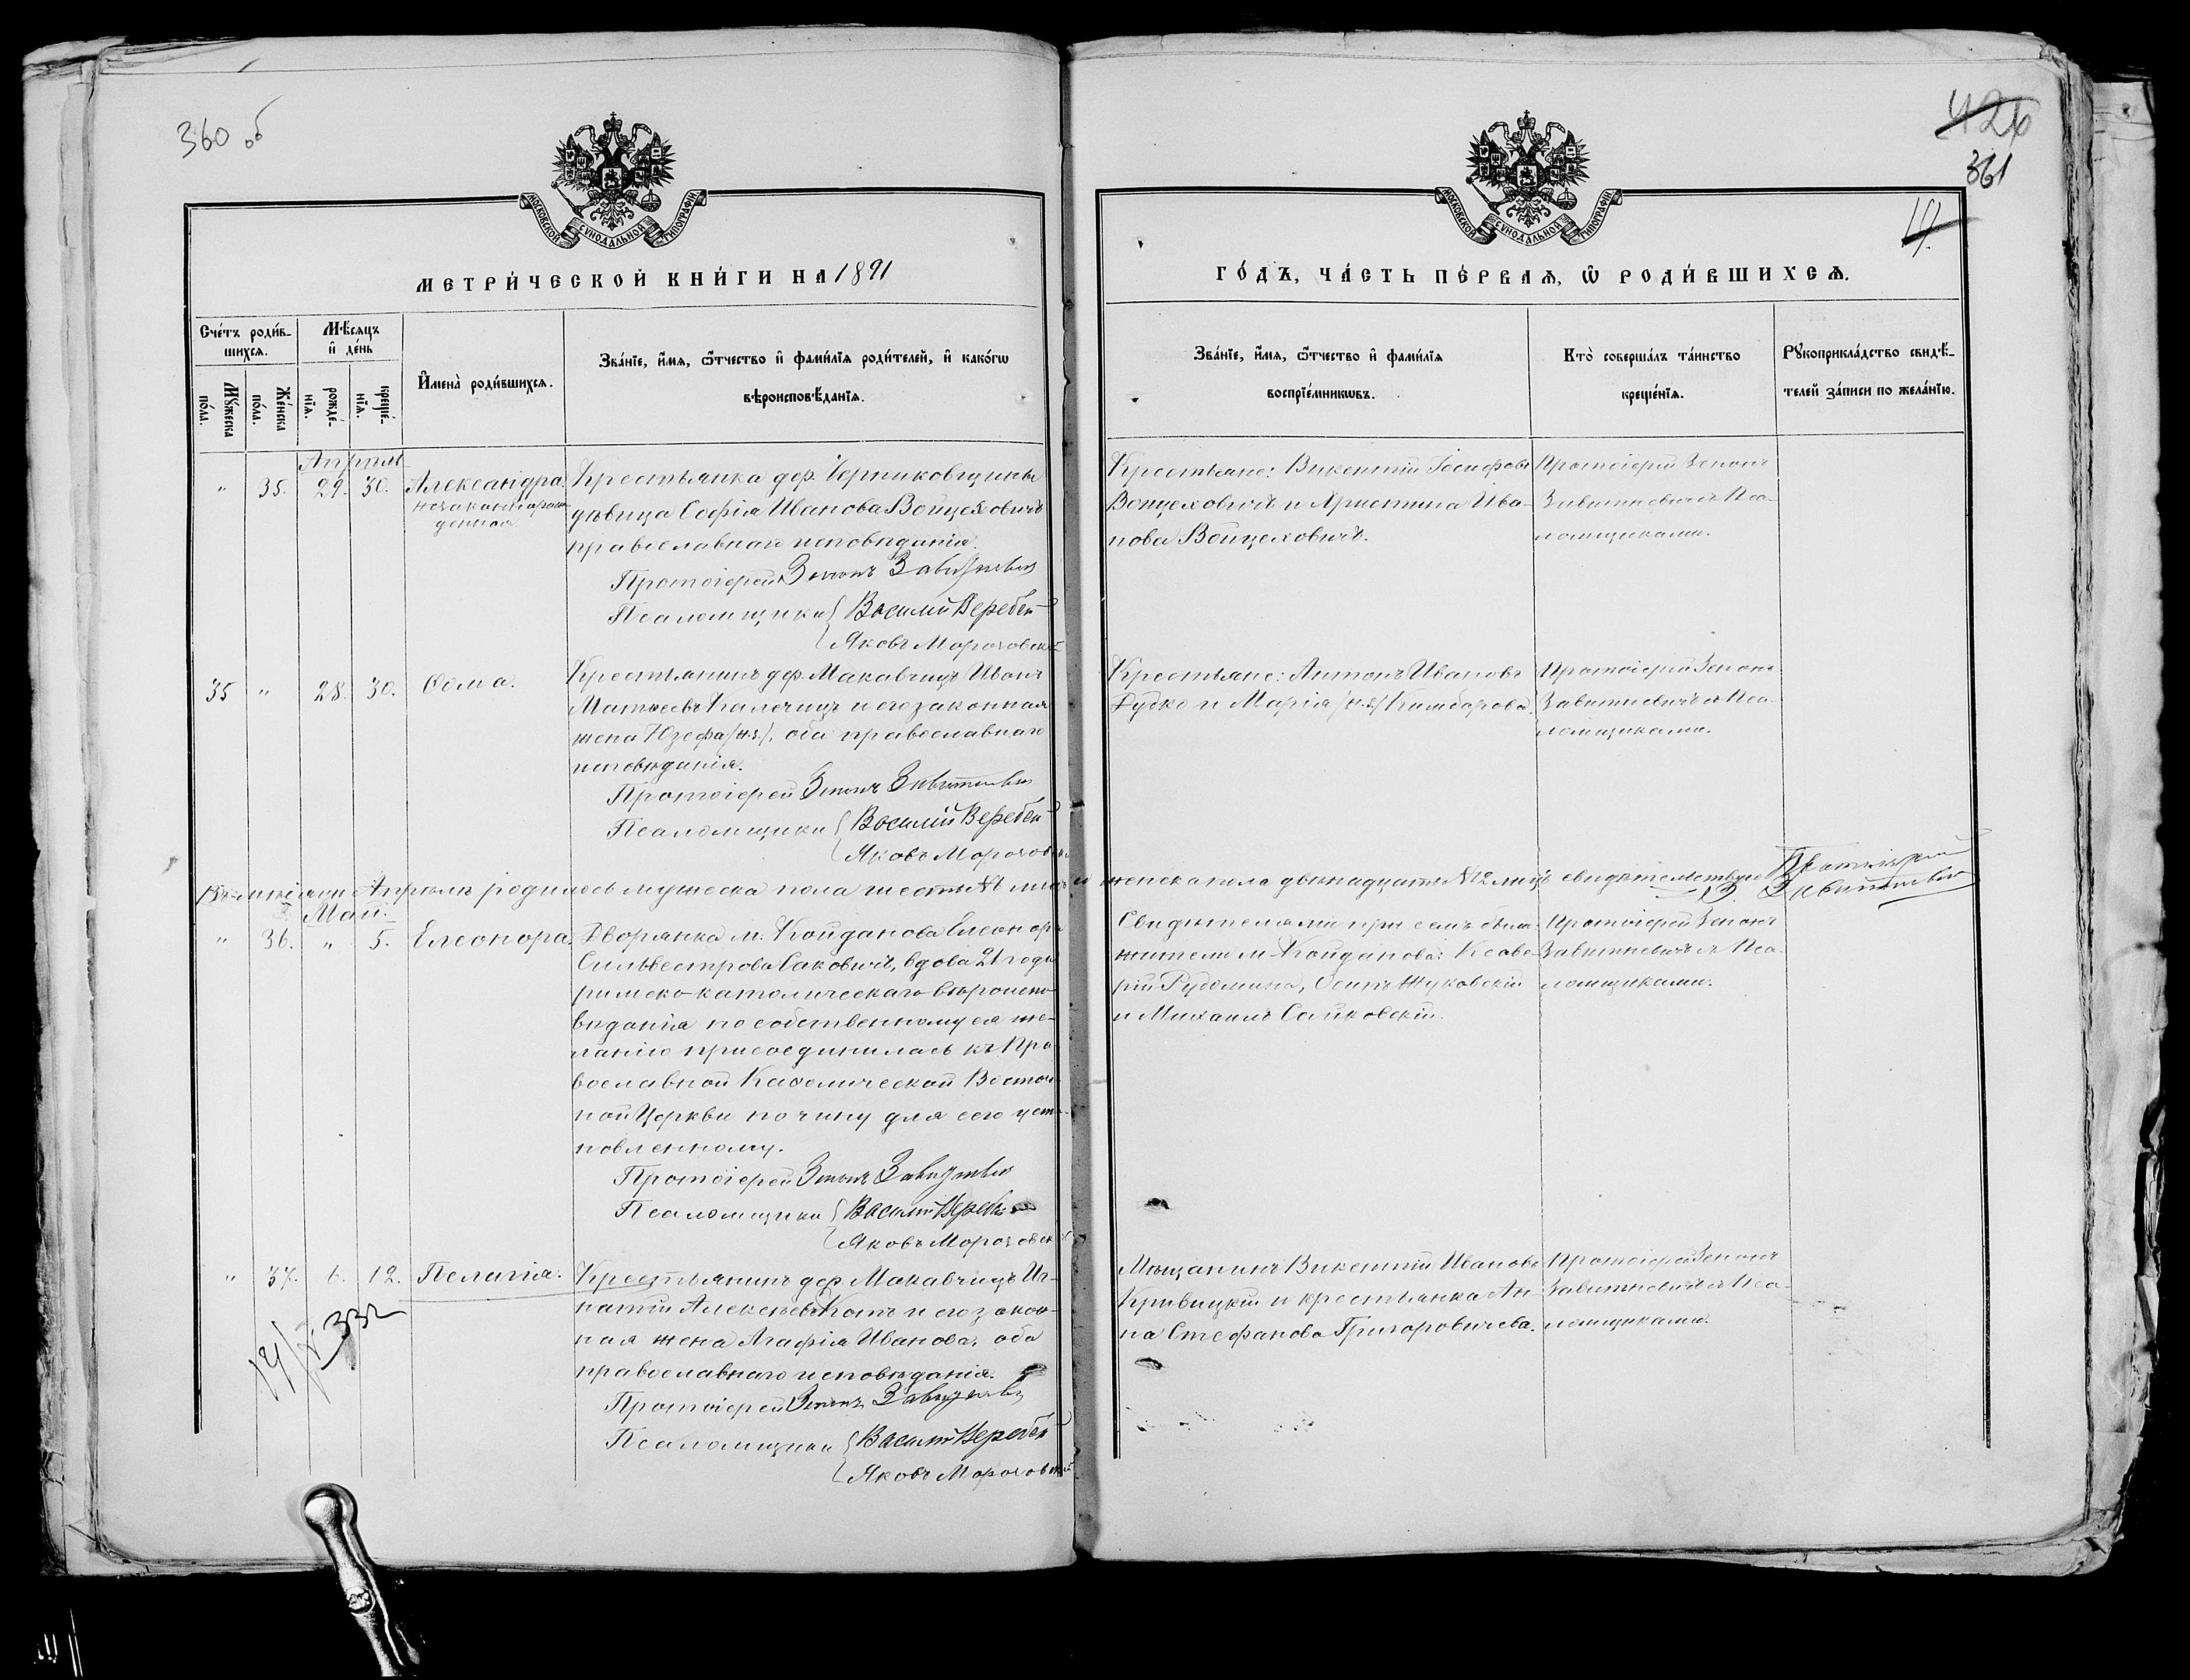 360 об
426
361
19.
МОСКОВСКОЙ СѴНОДАЛЬНОЙ ТИПОГРАФІИ
МОСКОВСКОЙ СѴНОДАЛЬНОЙ ТИПОГРАФІИ
МЕТРИ́ЧЕСКОЙ КНИ́ГИ НА 1891
ГО́ДЪ, ЧА́СТЬ ПЕ́РВАѦ, Ѿ РОДИ́ВШИХСѦ.
Сче́тъ роди́в-
шихсѧ.
Мѣ́сѧцъ
и҆ де́нь
Мꙋ́жеска
по́ла.
Же́нска
по́ла.
рожде́-
нїѧ.
креще́-
нїѧ.
И҆мена̀ роди́вшихсѧ.
Зва́нїе, и҆́мѧ, ѻ҆́тчество и҆ фами́лїѧ роди́телей, и҆ како́гѡ
вѣроисповѣ́данїѧ.
Зва́нїе, и҆́мѧ, ѻ҆́тчество и҆ фами́лїѧ
воспрїе́мникѡвъ.
Кто̀ соверша́лъ та́инство
креще́нїѧ.
Рꙋкоприкла́дство свидѣ́-
телей за́писи по жела́нїю.
Апрѣль
" 35. 29. 30. Александра
незаконнорож
денная
Крестьянка дер. Черниковщины
дѣвица Софія Иванова Войцеховичъ
православнаго исповѣданія.
Протоіерей Зенонъ Завитневич
Псаломщики { Василій Веребей
Яковъ Морочовскій
Крестьяне: Викентій Іосифовъ
Войцеховичъ и Христина Ива-
нова Войцеховичъ.
Протоіерей Зенонъ
Завитневичъ с Пса-
ломщиками.
35 " 28. 30. Ѳома.
Крестьянинъ дер. Макавчицъ Иванъ
Матѳеевъ Калечицъ и его законная
жена Юзефа /н.з./, оба православнаго
исповѣданія.
Протоіерей Зенонъ Завитневич
Псаломщики { Василій Веребей
Яковъ Морочовскій
Крестьяне: Антонъ Ивановъ
Дудко и Марія /н.з/ Камбарова.
Протоіерей Зенонъ
Завитневичъ с Пса-
ломщиками.
Въ мѣсяцѣ Апрѣлѣ родилось мужеска пола шесть № лицъ и женска пола двѣнадцать №12 лицъ свидѣтельствую Протоіерей
З. Завитневич
Май.
" 36. " 5. Елеонора.
Дворянка м. Койданова Елеонора
Сильвестрова Саковичъ, вдова 21 года
римско-католическаго вѣроиспо-
вѣданія по собственному ея же-
ланію присоединилась къ Пра-
вославной Каѳолической Восточ-
ной Церкви по чину для сего уста-
новленному.
Протоіерей Зенонъ Завитневич
Псаломщики { Василій Веребей
Яковъ Морочовскій
Свидѣтелями при семъ были
жители м. Койданова: Ксаве-
рій Рудомина, Осипъ Жуковскій
и Михаилъ Сайковскій.
Протоіерей Зенонъ
Завитневичъ с Пса-
ломщиками.
" 37. 6. 12. Пелагія.
Крестьянинъ дер. Макавчицъ Иг-
натій Алексѣевъ Котъ и его закон-
ная жена Агафія Иванова, оба
православнаго исповѣданія.
Протоіерей Зенонъ Завитневич
Псаломщики { Василій Веребей
Яковъ Морочовскій
Мѣщанинъ Викентій Ивановъ
Кривицкій и крестьянка Ан-
на Стефанова Григоровичева.
Протоіерей Зенонъ
Завитневичъ с Пса-
ломщиками.